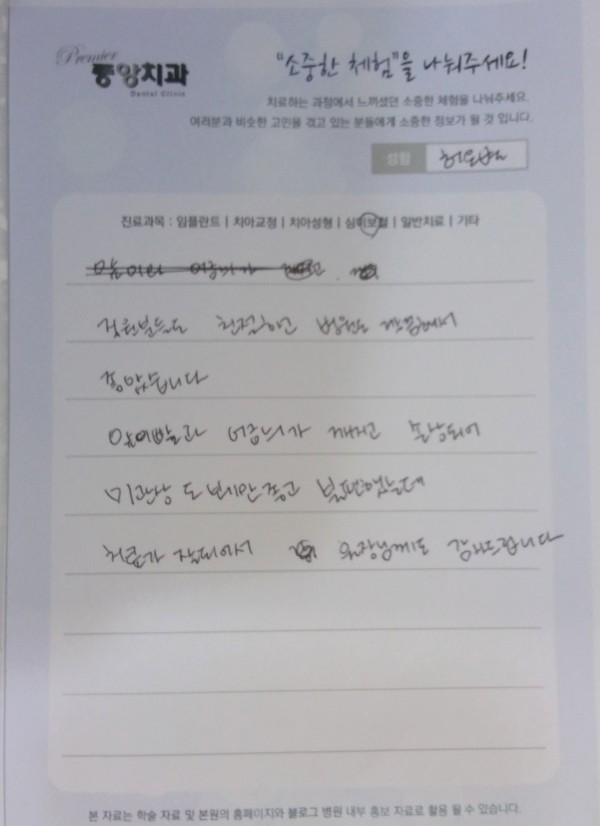 Premier
중앙치과
Dental Clinic
"소중한 체험"을 나눠주세요!
치료하는 과정에서 느끼셨던 소중한 체험을 나눠주세요.
여러분과 비슷한 고민을 겪고 있는 분들에게 소중한 정보가 될 것 입니다.
성함
진료과목 : 임플란트 | 치아교정 | 치아성형 | 심미보철 | 일반치료 | 기타
직원분들도 친절하고 병원도 깨끗해서
좋았습니다
앞이빨과 어금니가 깨지고 손상되어
미관상 도 보기안좋고 불편했는데
치료가 잘되어서 원장님께도 감사드립니다
본 자료는 학술 자료 및 본원의 홈페이지와 블로그 병원 내부 홍보 자료로 활용 될 수 있습니다.